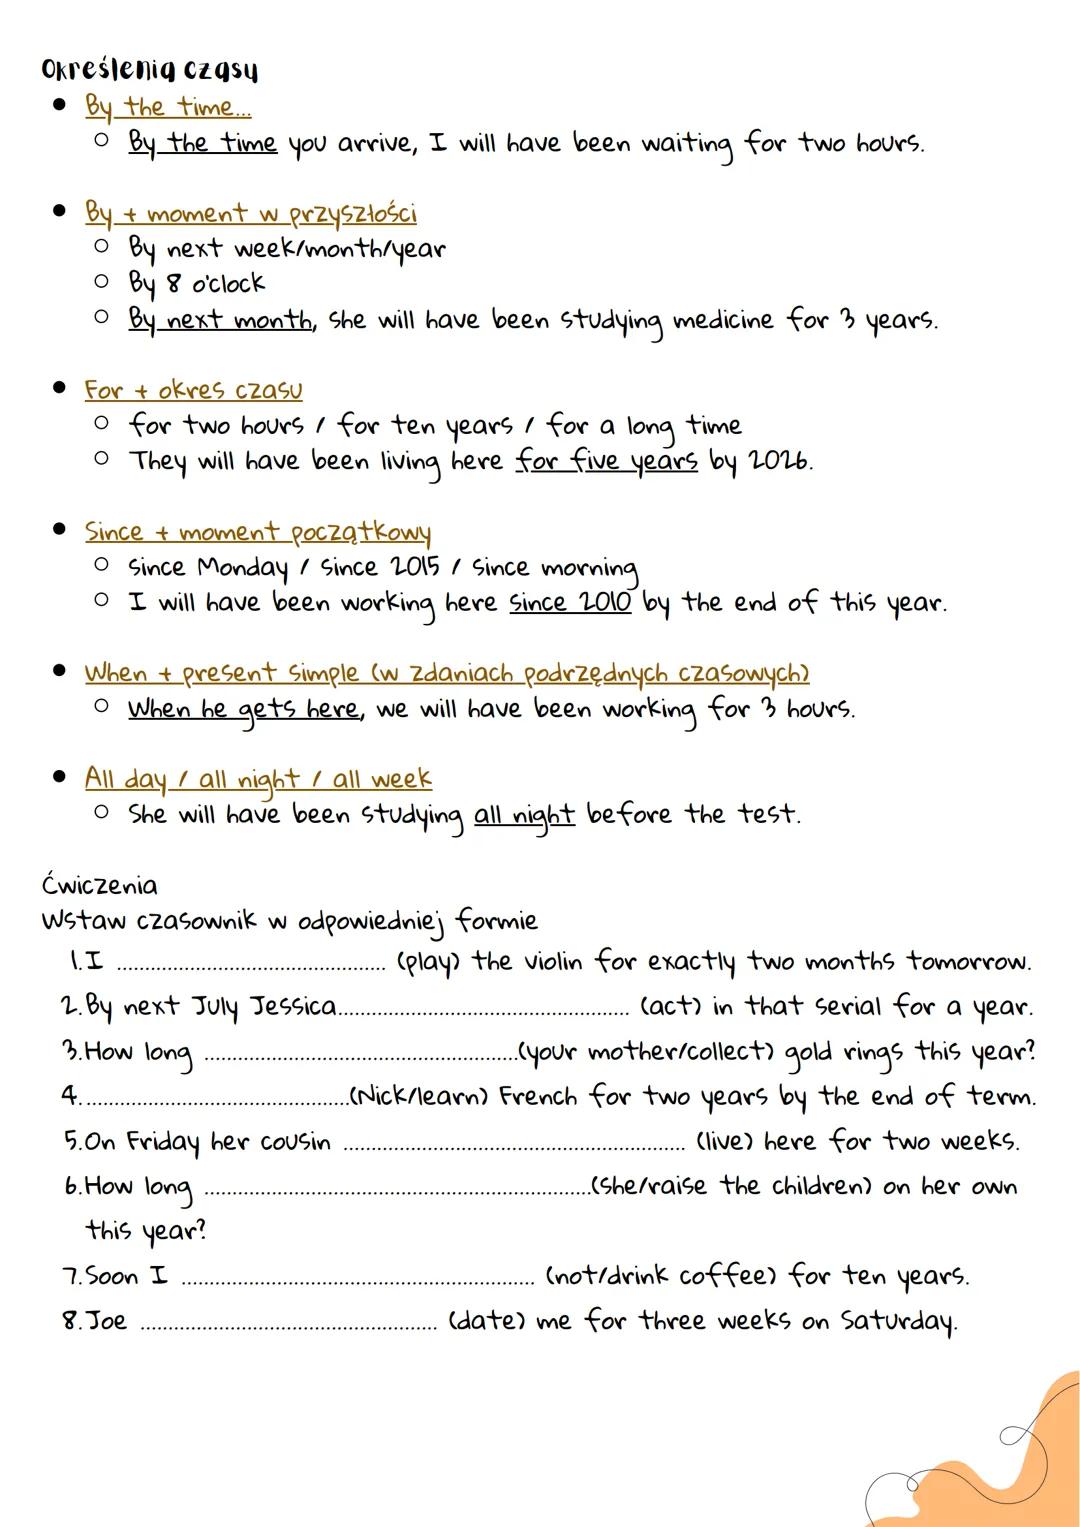 Określenia czasu
• By the time...
○ By the time you arrive, I will have been waiting for two hours.
• By + moment w przyszłości
○ By next week/month/year
○ By 8 o'clock
○ By next month, she will have been studying medicine for 3 years.
• For + okres czasu
○ for two hours / for ten years / for a long time
○ They will have been living here for five years by 2026.
• Since + moment początkowy
○ since Monday / since 2015 / since morning
○ I will have been working here since 2010 by the end of this year.
• When + present simple (w zdaniach podrzędnych czasowych)
○ When he gets here, we will have been working for 3 hours.
• All day / all night / all week
○ She will have been studying all night before the test.
Ćwiczenia
Wstaw czasownik w odpowiedniej formie
1. I ................................................ (play) the violin for exactly two months tomorrow.
2. By next July Jessica.................................................... (act) in that serial for a year.
3. How long ........................................................(your mother/collect) gold rings this year?
4. ...............................................(Nick/learn) French for two years by the end of term.
5. On Friday her cousin ............................................................. (live) here for two weeks.
6. How long .....................................................................(she/raise the children) on her own
this year?
7. Soon I ............................................................... (not/drink coffee) for ten years.
8. Joe ..................................................... (date) me for three weeks on Saturday.